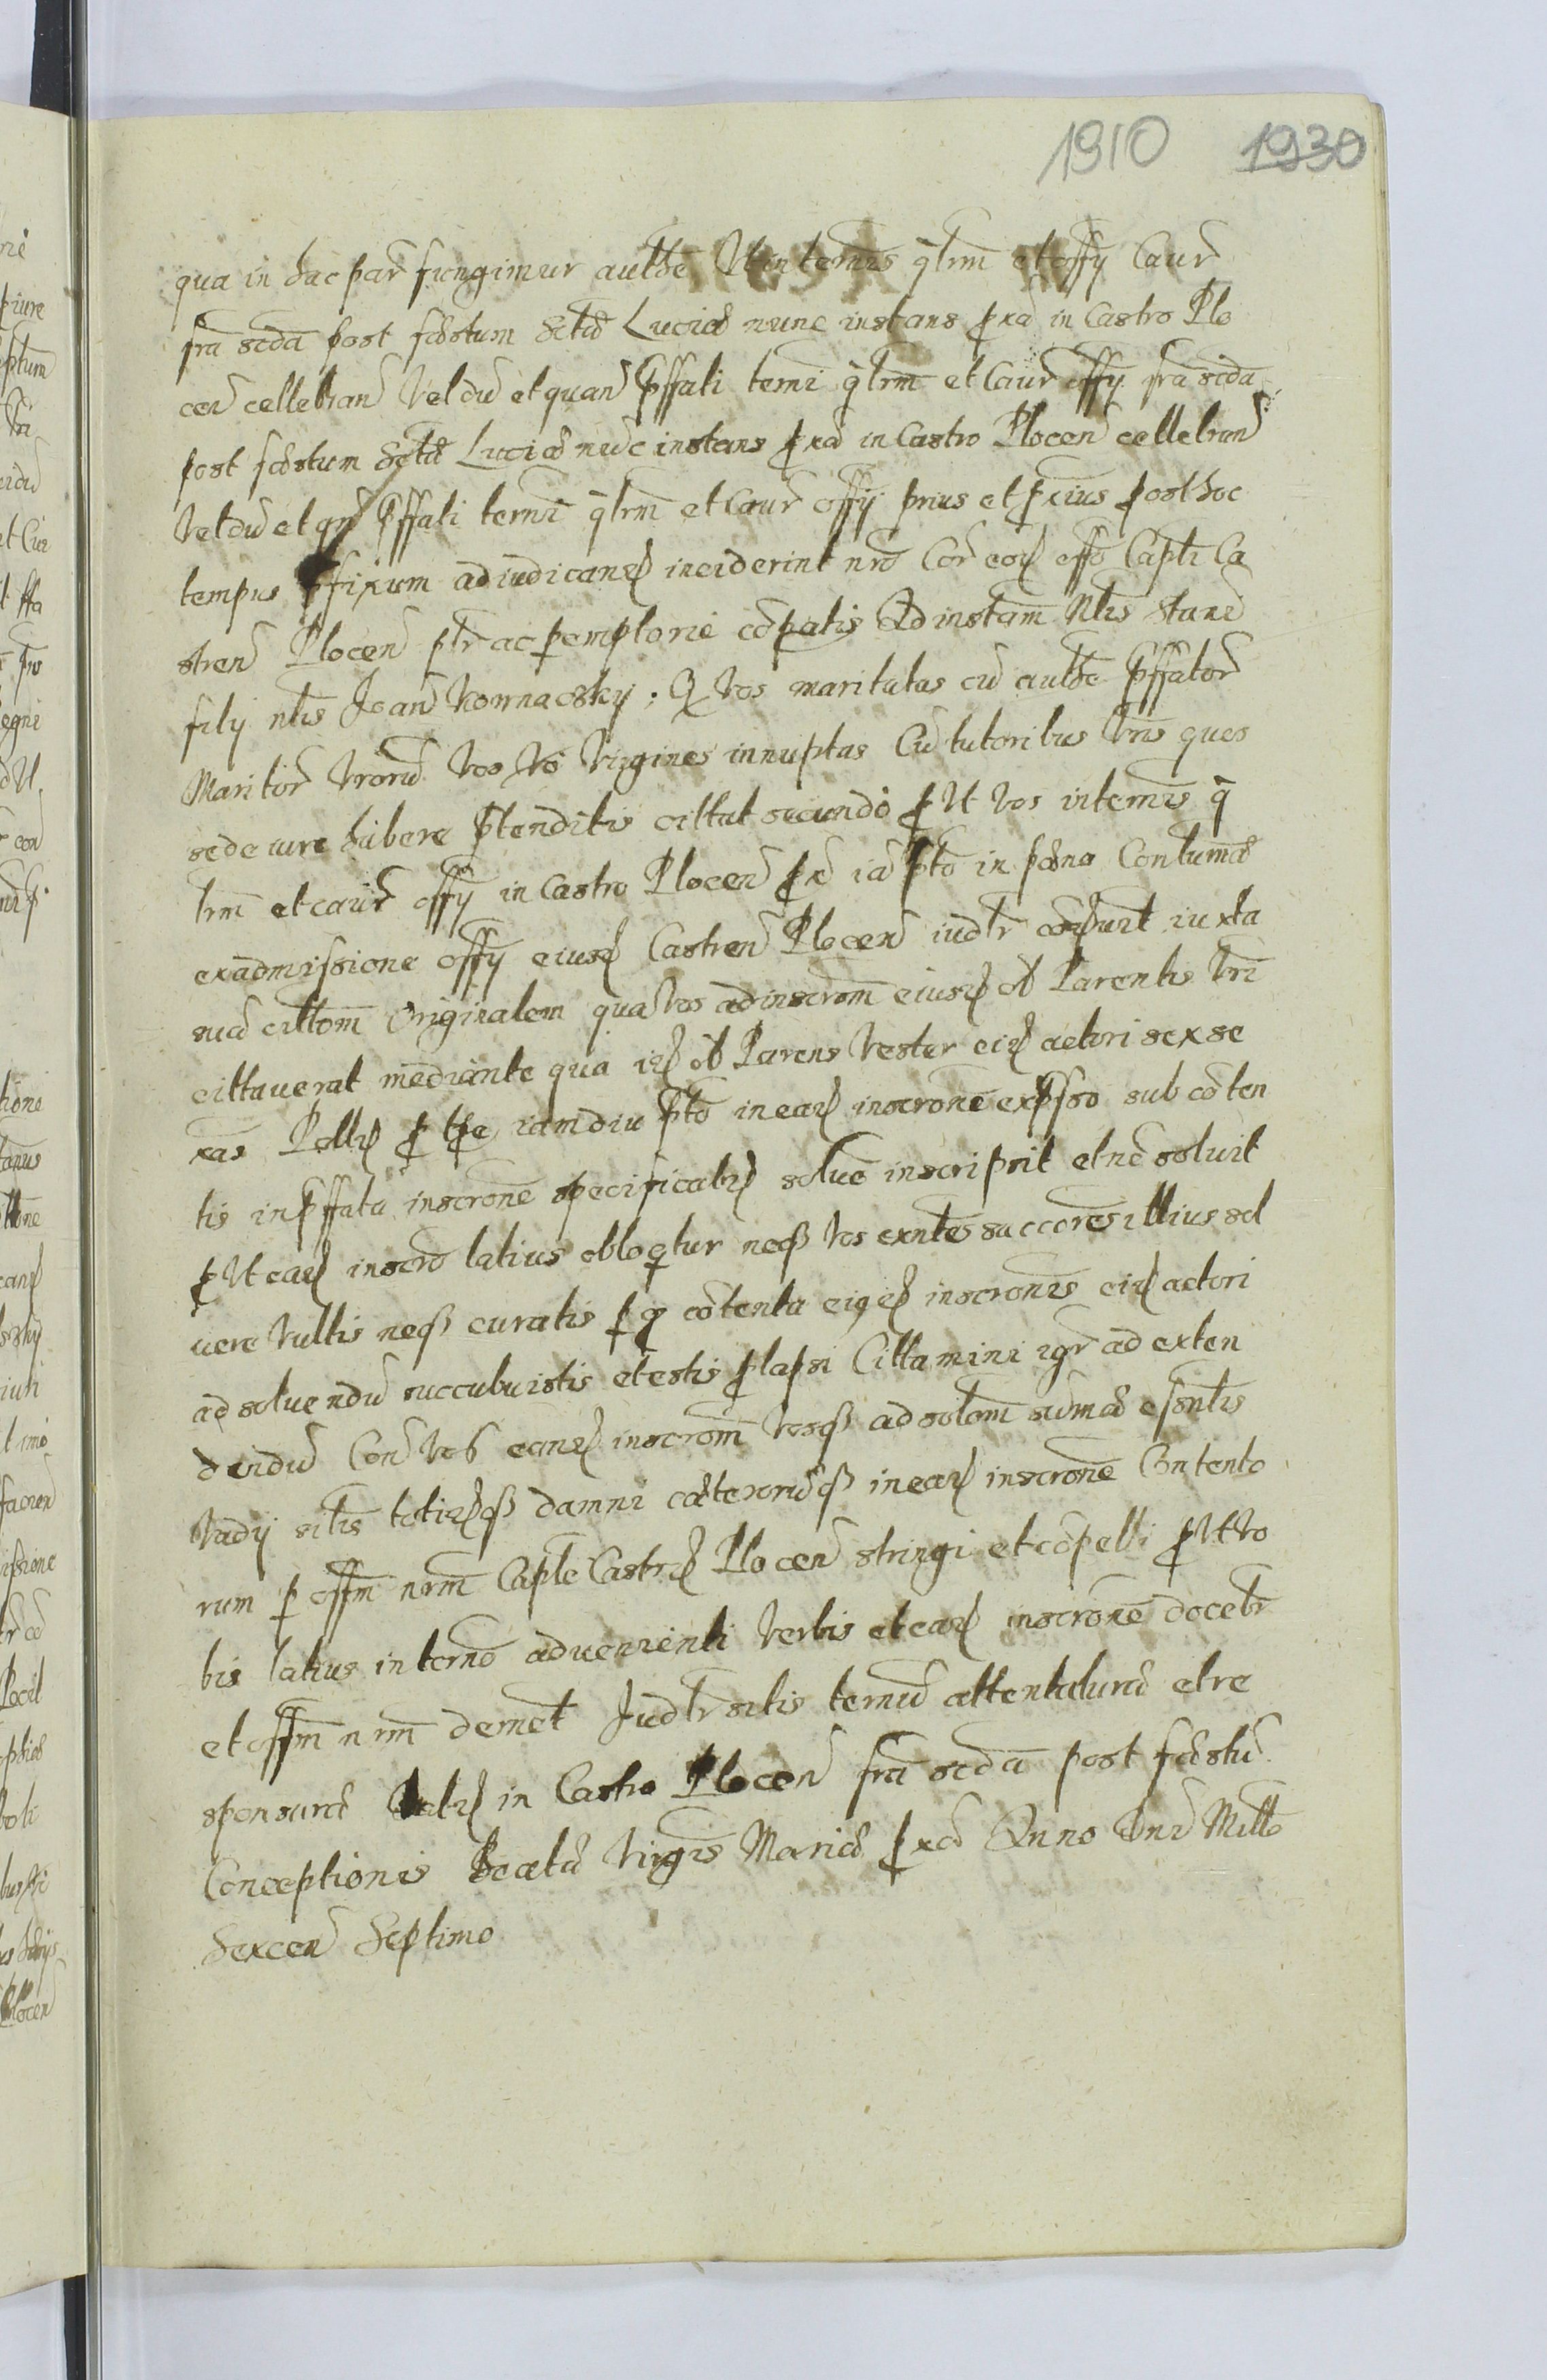 1910 1930
qua in hac par fungimur authe Ut in termis qrlm et offy Caur
fra scda post festum Sctæ Luciæ nunc instans pxa in Castro Plo
cen cellebran Vel du et quan pffati termi qrlm et Caur offy fra scda
post festum Sctæ Luciæ nuc instans pxa in Castro Plocen cellebran
Vel du et qn pffati termi qrlm et Caur offy prius et pxius post hoc
tempus pfixum adiudicand inciderint nro Cor eod offo Capti Ca
stren Plocen ptr ac pemptorie copatis Ad instam Nlis Stani
filij nlis Joan Kownaczky; Q Vos maritatas cu authe pffator
Maritor Vroru Vos Vo Virgines innuptas Cu tutoribus Vris quos
se de iure habere ptenditis cittat secundo p Ut Vos in termis q
rlm et caur offy in Castro Plocen px ia pto in pæna Contumæ
ex admissione offy eiusd Castren Plocen iudtr iuxta
sua cittom Originalem qua Vos ad inscrom eiusd ol Parentis Vri
cittauerat mediante qua id ol Parens Vester eid actori sexse
xas Polld p tpe iam diu pto in ead inscrone expsso sub coten
tis in pffata inscrone specificatd solue inscripsit et no soluit
p Ut ead inscro latius obloqtur neq Vos exntes succores illius sol
uere Vultis neq curatis p q cotenta eiqd inscronis eid actori
ad soluendu succubuistis et estis plapsi Cittamini igr ad exten
dendu Con Vos eand inscrom Vosq ad solom sumæ essntis
Vadij sitis totidq damni cæteroruq in ead inscrone Contento
rum p offm nrm Caple Castrd Plocen stringi et copelli p Ut Vo
bis latius in termo aduenienti Verbis et ead inscrone docebr
et offm nrm demet Judtr sitis termu attentaturæ et re
sponsuræ Datd in Castro Plocen fra scda post festu
Conceptionis Beatæ Virgis Mariæ pxa Anno Dni Millo
Sexcen Septimo